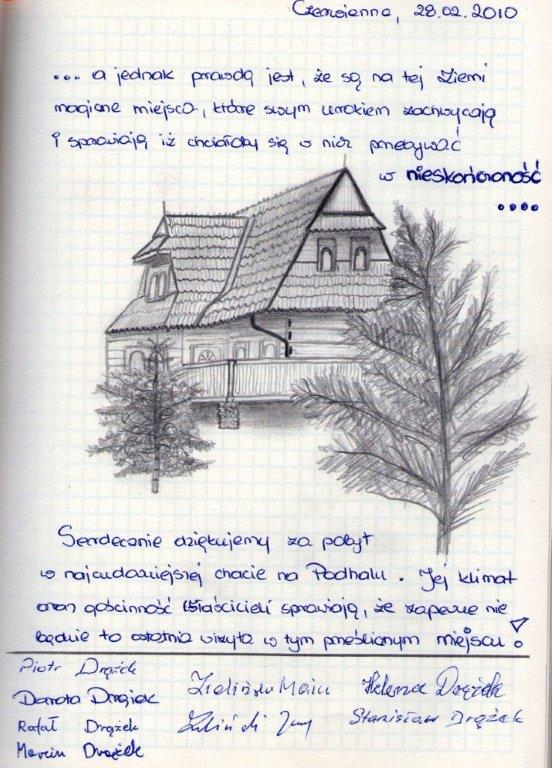 Czerwienne, 28.02.2010
... a jednak prawdą jest, że są na tej ziemi
magiczne miejsca, które swym urokiem zachwycają
i sprawiają iż chciałoby się w nich przebywać
w nieskończoność
....
Serdecznie dziękujemy za pobyt
w najcudowniejszej chacie na Podhalu. Jej klimat
oraz gościnność Właścicieli sprawiają, że zapewne nie
będzie to ostatnia wizyta w tym prześlicznym miejscu!
Piotr Drążek
Dorota Drążek
Rafał Drążek
Marcin Drążek
Zielińska Maria
Zieliński Jerzy
Helena Drążek
Stanisław Drążek